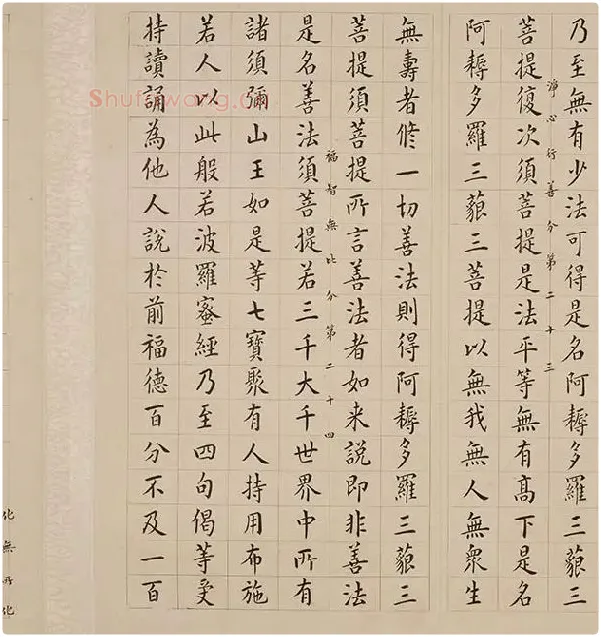 乃至無有少法可得是名阿耨多羅三藐三
淨心行善分第二十三
菩提復次須菩提是法平等無有高下是名
阿耨多羅三藐三菩提以無我無人無衆生
無壽者修一切善法則得阿耨多羅三藐三
菩提須菩提所言善法者如来說即非善法
福智無比分第二十四
是名善法須菩提若三千大千世界中所有
諸須彌山王如是等七寶聚有人持用布施
若人以此般若波羅蜜經乃至四句偈等受
持讀誦為他人說於前福德百分不及一百
化無所化